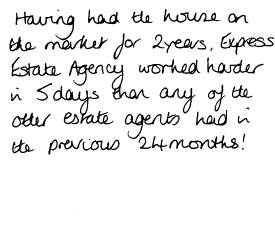 Having had the house on
the market for 2years, Express
Estate Agency worked harder
in 5days than any of the
other estate agents had in
the previous 24months!